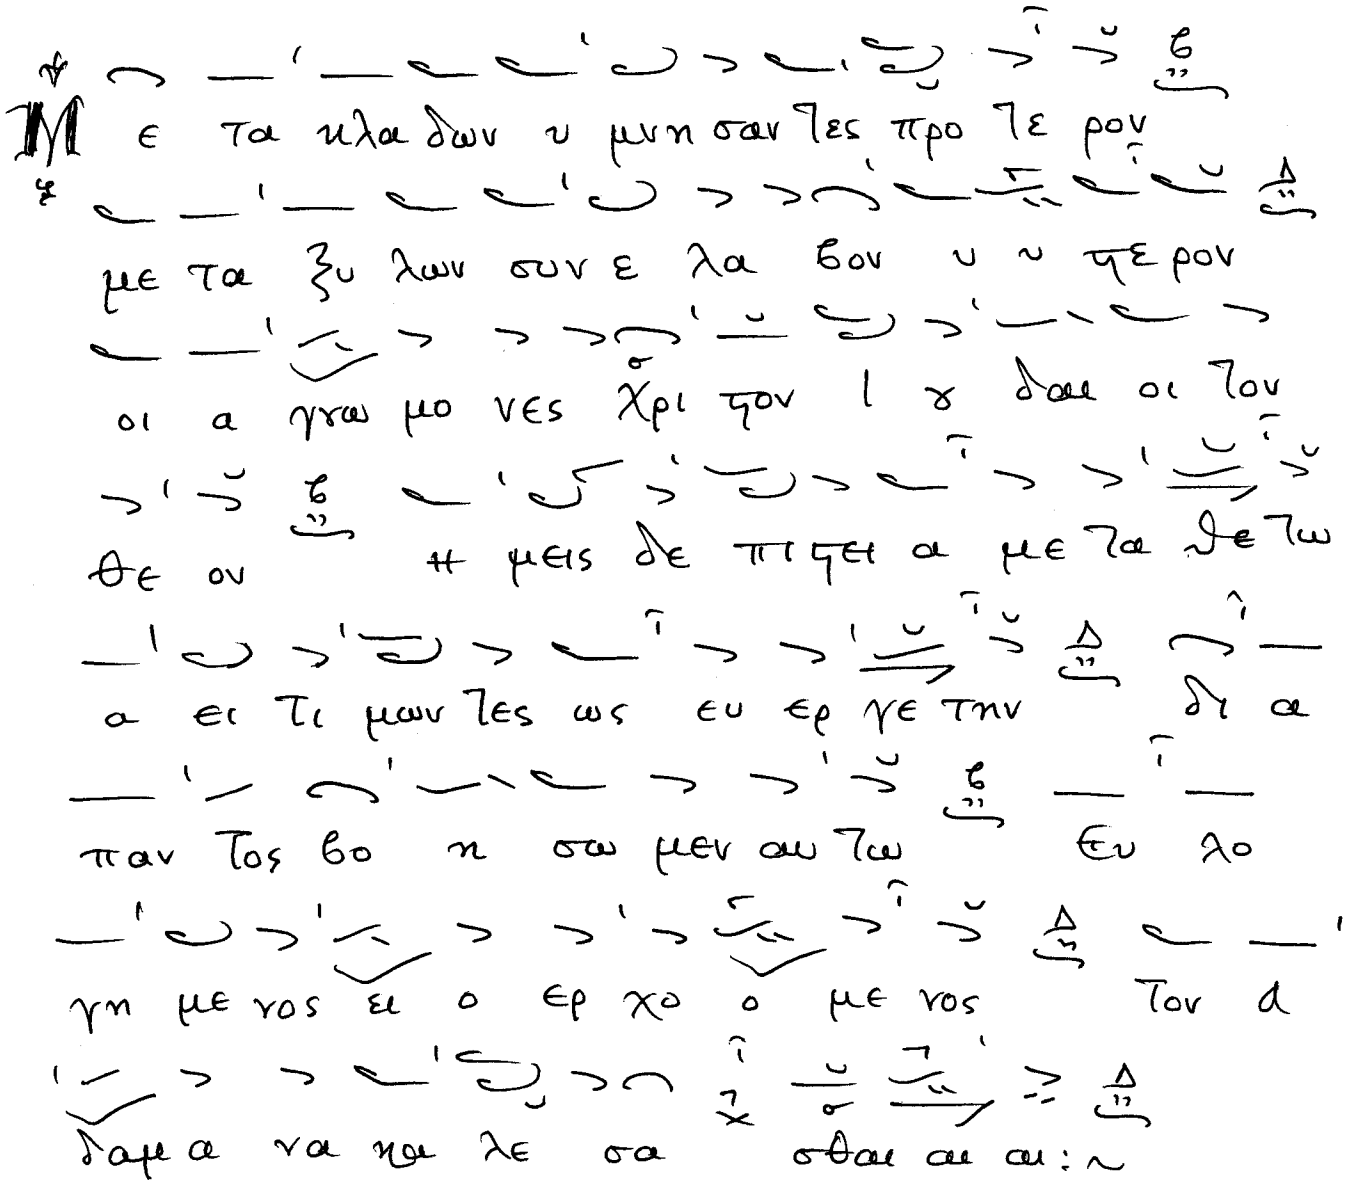 Μ ε τα κλα δων υ μνη σαν τες προ τε ρον
με τα ξυ λων συν ε λα βον υ υ ϛε ρον
οι α γνω μο νες Χρι ϛον Ι ȣ δαι οι τον
θε ον η μεις δε πι ϛει α με τα θε τω
α ει τι μων τες ως ευ ερ γε την δι α
παν τος βο η σω μεν αυ τω Ευ λο
γη με νος ει ο ερ χο ο με νος τον Α
δαμ α να κα λε σα σθαι αι αι :~